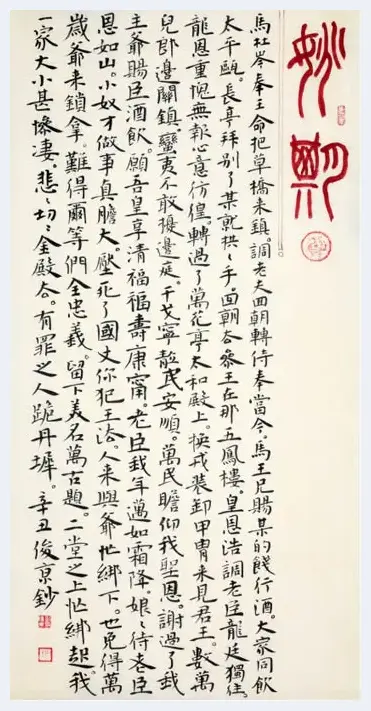 妙
馬杜岑奉王命把草橋来鎮。調老夫回朝轉侍奉當今。馬王兄賜某的餞行酒。大家同飲
太平甌。長亭拜别了某就拱〻手。回朝厺參王在那五鳳樓。皇恩浩調老臣龍廷獨住。
龍恩重愧無報心意彷徨。轉過了萬花亭太和殿上。换戎裝卸甲冑来見君王。數萬
兒郎邊關鎮。蠻夷不敢擾邊廷。干戈寧静民安順。萬民瞻仰我聖恩。謝過了我
主爺賜臣酒飲。願吾皇享清福福壽康甯。老臣我年邁如霜降。娘〻待老臣
恩如山。小奴才做事真膽大。壓死了國丈你犯王法。人来與爺忙綁下。也免得萬
歲爺来鎖拿。難得爾等們全忠義。留下美名萬古題。二堂之上忙綁起。我
一家大小甚慘凄。悲〻切〻金殿厺。有罪之人跪丹墀。辛丑俊京鈔